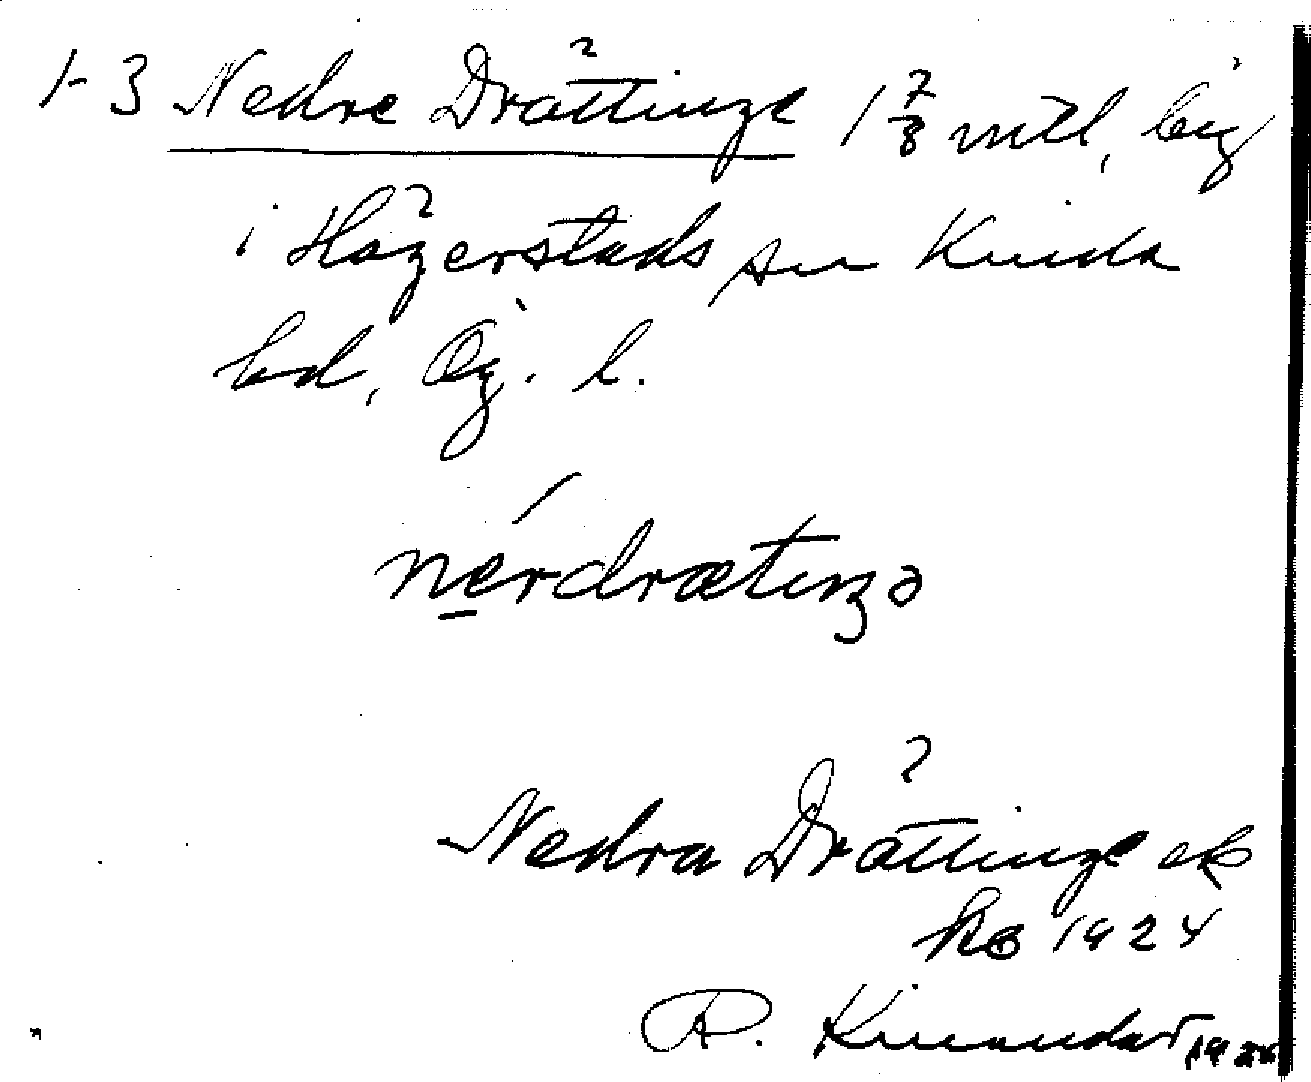 1-3 Nedre Drättinge 1 7/8 mtl, by
i Hägerstads sn Kinda
hd, Ög. l.
nèrdrætiŋə
Nedra Drättinge ek
kb 1924
R. Kinander